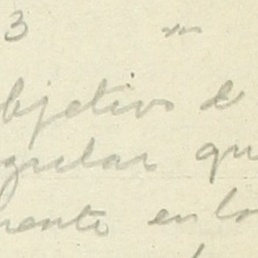 3
objetivo de
gular que
mente en lo